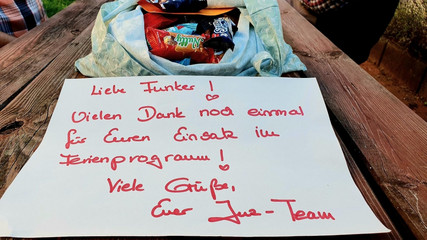 Liebe Funker!
Vielen Dank noch einmal
für Euren Einsatz im
Ferienprogramm!
Viele Grüße,
Euer Jux-Team